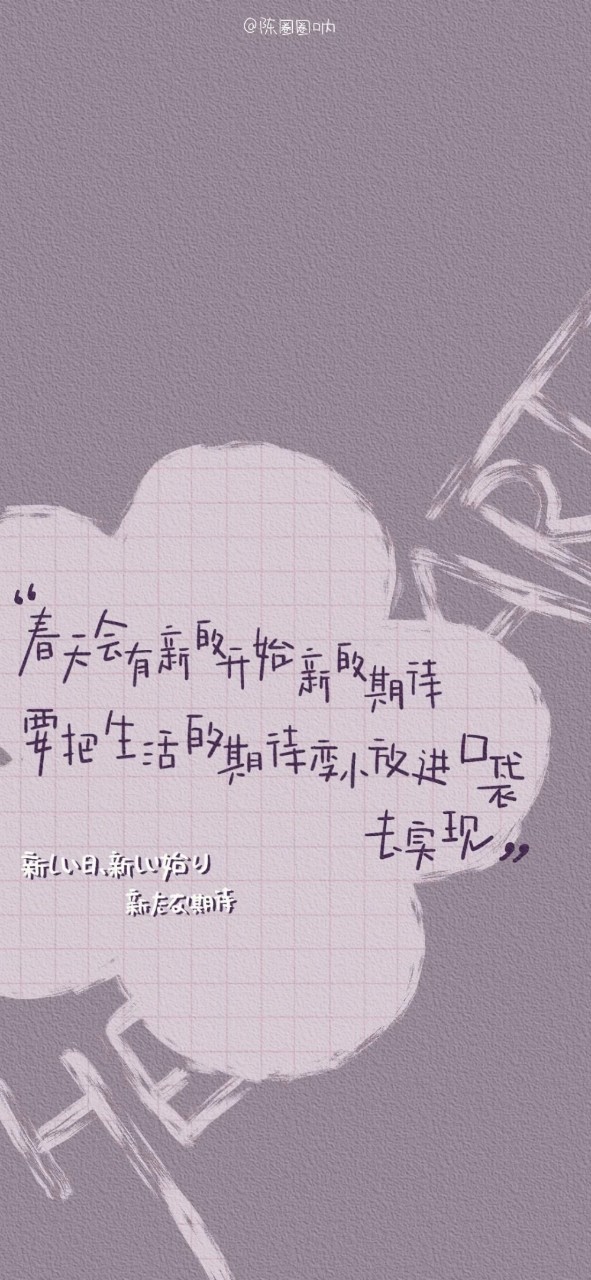 @陈圈圈呐
“春天会有新的开始新的期待
要把生活的期待变小放进口袋
去实现”
新しい日、新しい始り
新たな期待